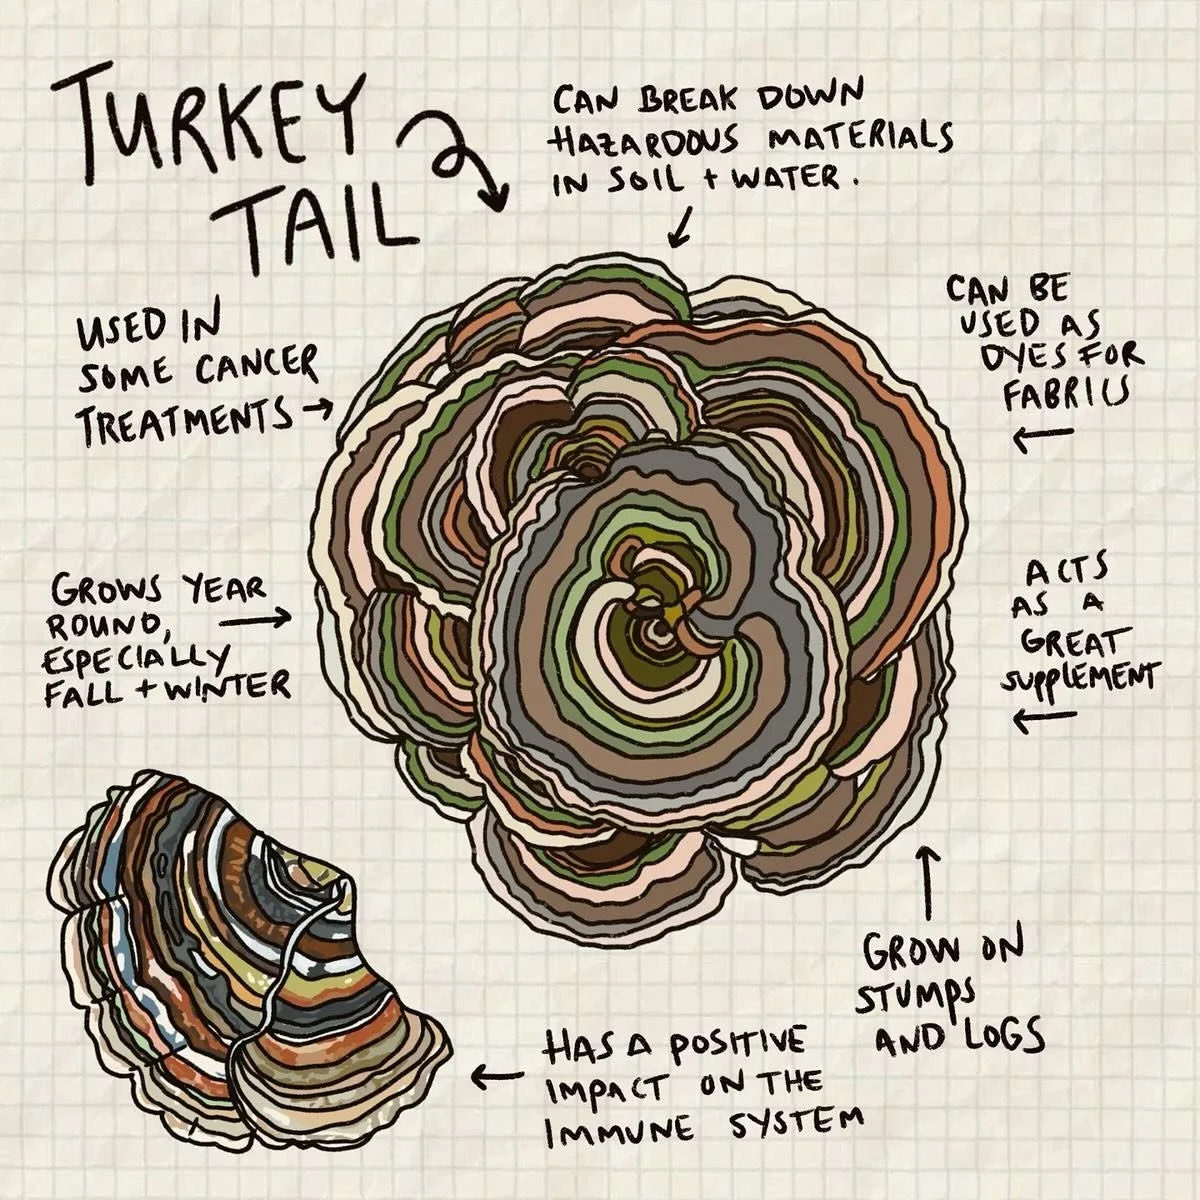 TURKEY
TAIL
CAN BREAK DOWN
HAZARDOUS MATERIALS
IN SOIL + WATER.
USED IN
SOME CANCER
TREATMENTS
CAN BE
USED AS
DYES FOR
FABRICS
GROWS YEAR
ROUND,
ESPECIALLY
FALL + WINTER
ACTS
AS A
GREAT
SUPPLEMENT
GROW ON
STUMPS
AND LOGS
HAS A POSITIVE
IMPACT ON THE
IMMUNE SYSTEM